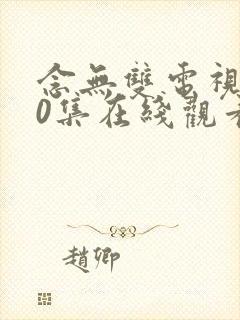 念無雙電視
0集在綫觀看
趙卿